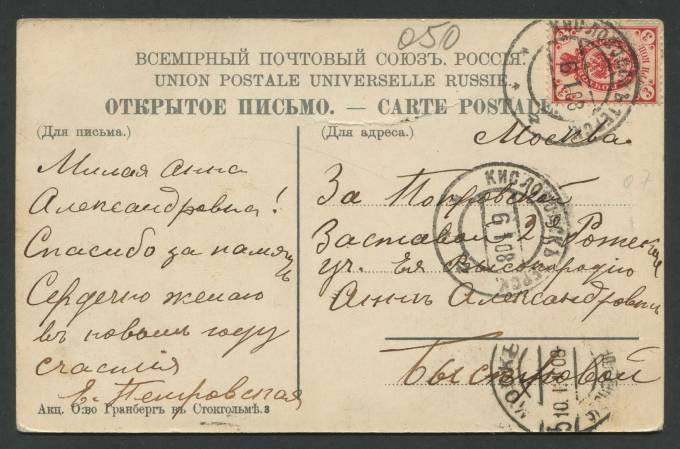 050
ВСЕМІРНЫЙ ПОЧТОВЫЙ СОЮЗЪ. РОССІЯ.
UNION POSTALE UNIVERSELLE RUSSIE.
ОТКРЫТОЕ ПИСЬМО. — CARTE POSTALE.
(Для письма.)
Милая Анна
Александровна!
Спасибо за память
Сердечно желаю
въ новомъ году
счастія
Е. Петровская
Акц. О-во Гранбергъ въ Стокгольмѣ. 3
(Для адреса.)
Москва.
За Покровской
Заставой 2
уч. Ея Высокородію
Аннѣ Александровнѣ
Быстровой
КИСЛОВОДСКЪ ТЕРСК.
6 1 08
КИСЛОВОДСКЪ
6 1 08
МОСКВА
10 1 08
3
07